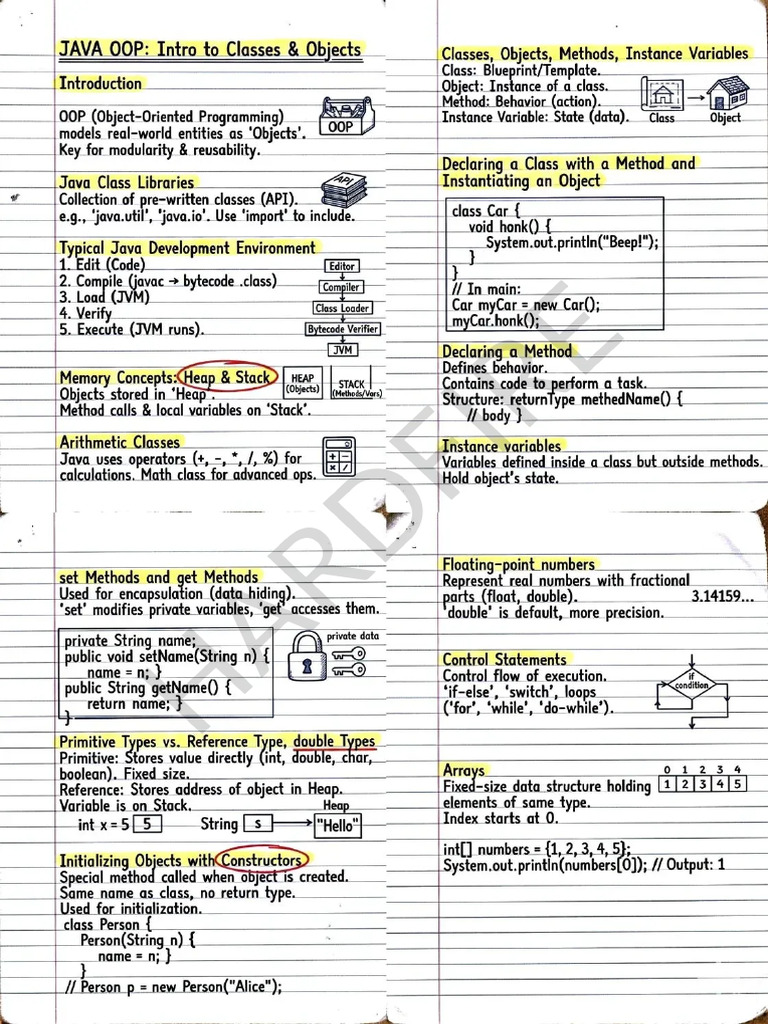 JAVA OOP: Intro to Classes & Objects
Introduction
OOP (Object-Oriented Programming)
models real-world entities as 'Objects'.
Key for modularity & reusability.
OOP
Java Class Libraries
Collection of pre-written classes (API).
e.g., 'java.util', 'java.io'. Use 'import' to include.
API
Typical Java Development Environment
1. Edit (Code)
2. Compile (javac → bytecode .class)
3. Load (JVM)
4. Verify
5. Execute (JVM runs).
Editor
Compiler
Class Loader
Bytecode Verifier
JVM
Memory Concepts: Heap & Stack
Objects stored in 'Heap'.
Method calls & local variables on 'Stack'.
HEAP
(Objects)
STACK
(Methods/Vars)
Arithmetic Classes
Java uses operators (+, -, *, /, %) for
calculations. Math class for advanced ops.
Classes, Objects, Methods, Instance Variables
Class: Blueprint/Template.
Object: Instance of a class.
Method: Behavior (action).
Instance Variable: State (data).
Class
Object
Declaring a Class with a Method and
Instantiating an Object
class Car {
void honk() {
System.out.println("Beep!");
}
}
// In main:
Car myCar = new Car();
myCar.honk();
Declaring a Method
Defines behavior.
Contains code to perform a task.
Structure: returnType methedName() {
// body }
Instance variables
Variables defined inside a class but outside methods.
Hold object's state.
set Methods and get Methods
Used for encapsulation (data hiding).
'set' modifies private variables, 'get' accesses them.
private String name;
public void setName(String n) {
name = n; }
public String getName() {
return name; }
}
private data
Primitive Types vs. Reference Type, double Types
Primitive: Stores value directly (int, double, char,
boolean). Fixed size.
Reference: Stores address of object in Heap.
Variable is on Stack.
Heap
int x = 5 5
String s → "Hello"
Initializing Objects with Constructors
Special method called when object is created.
Same name as class, no return type.
Used for initialization.
class Person {
Person(String n) {
name = n; }
}
// Person p = new Person("Alice");
Floating-point numbers
Represent real numbers with fractional
parts (float, double). 3.14159...
'double' is default, more precision.
Control Statements
Control flow of execution.
'if-else', 'switch', loops
('for', 'while', 'do-while').
if
condition
Arrays
Fixed-size data structure holding
elements of same type.
Index starts at 0.
0 1 2 3 4
1 2 3 4 5
int[] numbers = {1, 2, 3, 4, 5};
System.out.println(numbers[0]); // Output: 1
HARDFIRE